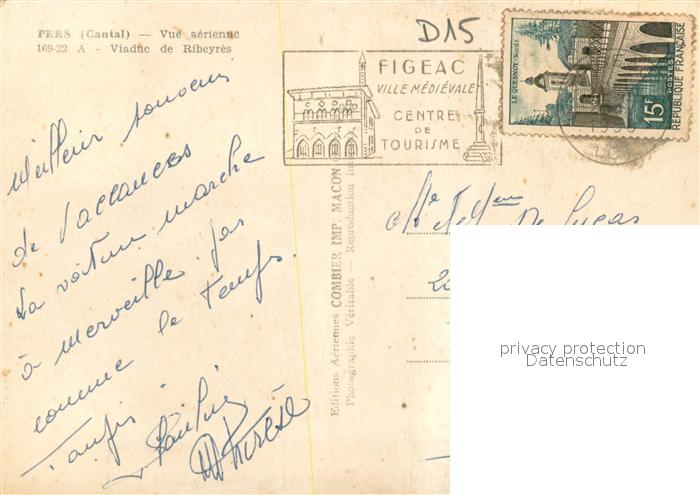 PERS (Cantal) — Vue aérienne
169-22 A - Viaduc de Ribeyrès
D15
FIGEAC
VILLE MÉDIÉVALE
CENTRE
DE
TOURISME
LE QUESNOY (Nord)
15F
POSTES
RÉPUBLIQUE FRANÇAISE
Meilleur souvenir
de vaccances
La voiture marche
à merveille pas
comme le temps.
Tanpis
Editions Aériennes COMBIER IMP. MACON
Photographie Véritable — Reproduction
Mr et Mme De Lucas
privacy protection
Datenschutz